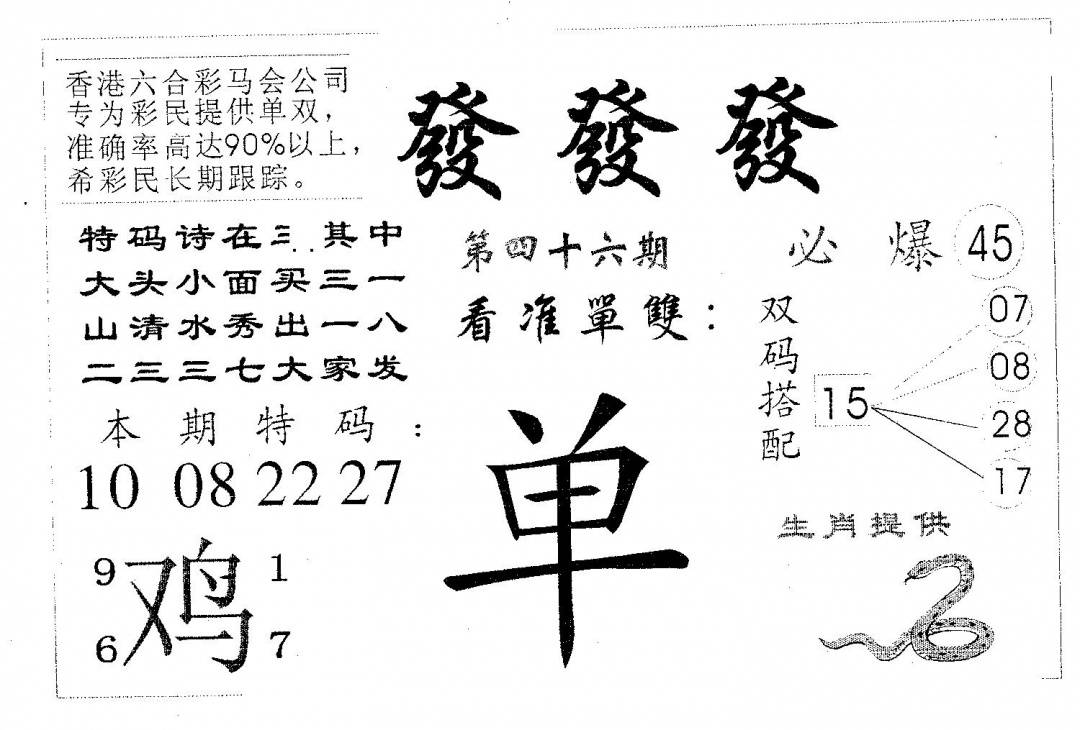 香港六合彩马会公司
专为彩民提供单双，
准确率高达90%以上，
希彩民长期跟踪。
發 發 發
特码诗在三其中
大头小面买三一
山清水秀出一八
二三三七大家发
第四十六期
看准單雙：
必爆 45
双码搭配
15
07
08
28
17
本期特码：
10 08 22 27
单
9 鸡 1
6 7
生肖提供